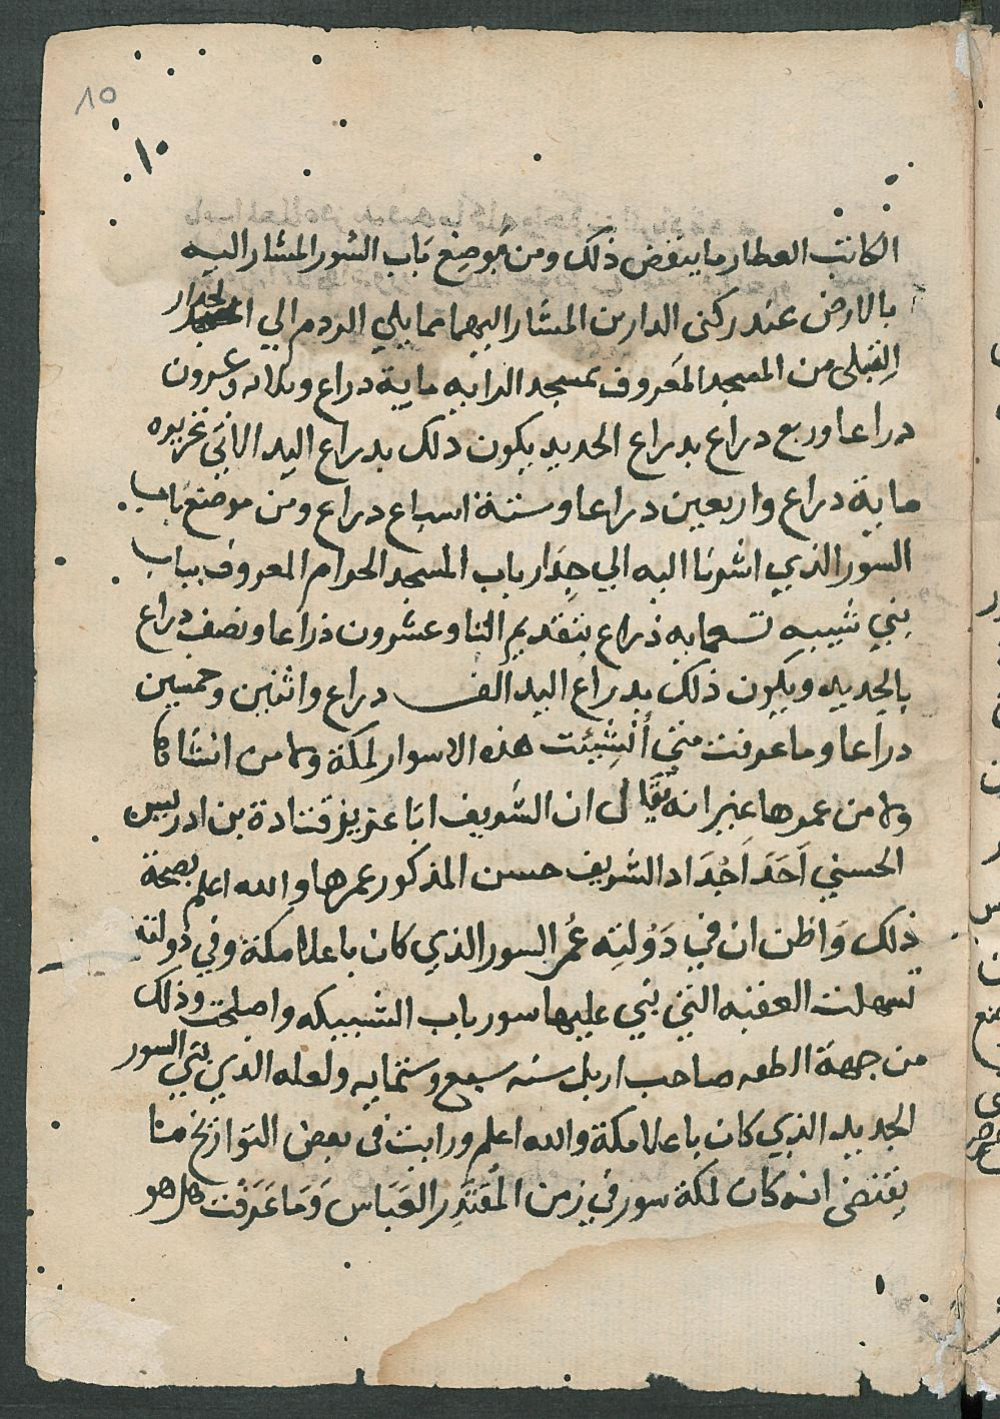 ٨٥
١٠
الكاتب العطار ما ينقض ذلك ومن موضع باب السور المشار اليه
بالارض عند ركنى الدارين المشار اليهما مما يلي الردم الي الجدار
القبلى من المسجد المعروف بمسجد الرايه ماية دراع وثلاثه وعشرون
دراعا وربع دراع بدراع الحديد يكون دلك بدراع اليد الاتي تحريره
ماية دراع واربعين دراعا وستة اسباع دراع ومن موضع باب
السور الذي اشرنا اليه الي جدار باب المسجد الحرام المعروف بباب
بني شيبه تسعمايه ذراع بتقديم التا وعشرون ذراعا ونصف دراع
بالحديد ويكون ذلك بدراع اليد الف دراع واثنين وخمسين
دراعا وما عرفت متي أنشيئت هذه الاسوار لمكة ولا من انشاها
ولا من عمرها غير انه يقال ان الشريف ابا عزيز قتادة بن ادريس
الحسني احد اجداد الشريف حسن المذكور عمرها والله اعلم بصحة
ذلك واظن ان في دولته عمر السور الذي كان باعلا مكة وفي دولته
تسهلت العقبه التي بني عليها سور باب الشبيكه واصلحت وذلك
من جهة المظفر صاحب اربل سنه سبع وستمايه ولعله الدي بني السور
الجديد الذي كان باعلا مكة والله اعلم ورايت فى بعض التوازيخ ما
يقتضى انه كان لمكة سور في زمن المقتدر العباس وما عرفت هل هو